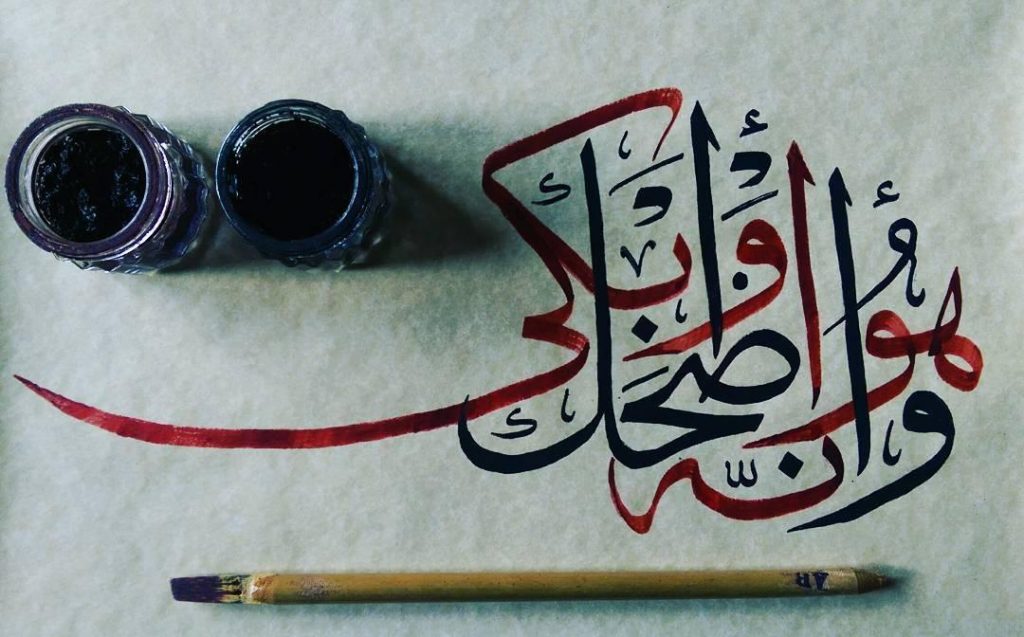 وأنه هو أضحك وأبكى
AR